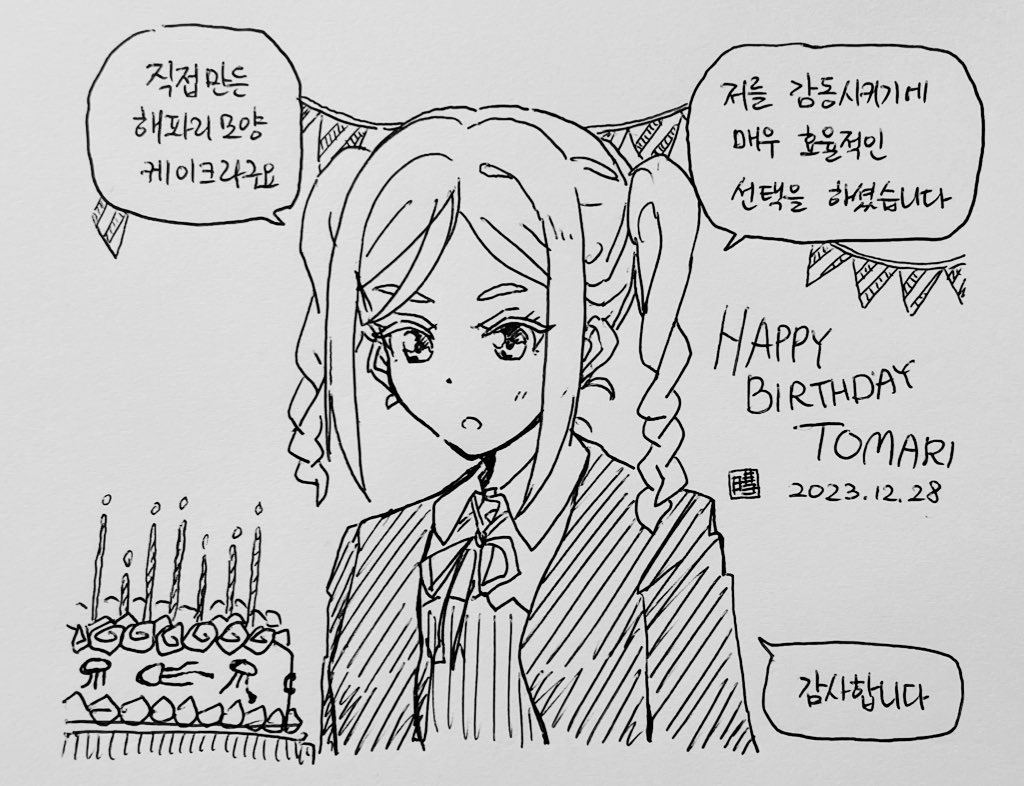 직접 만든
해파리 모양
케이크라구요
저를 감동시키기에
매우 효율적인
선택을 하셨습니다
HAPPY
BIRTHDAY
TOMARI
2023.12.28
감사합니다